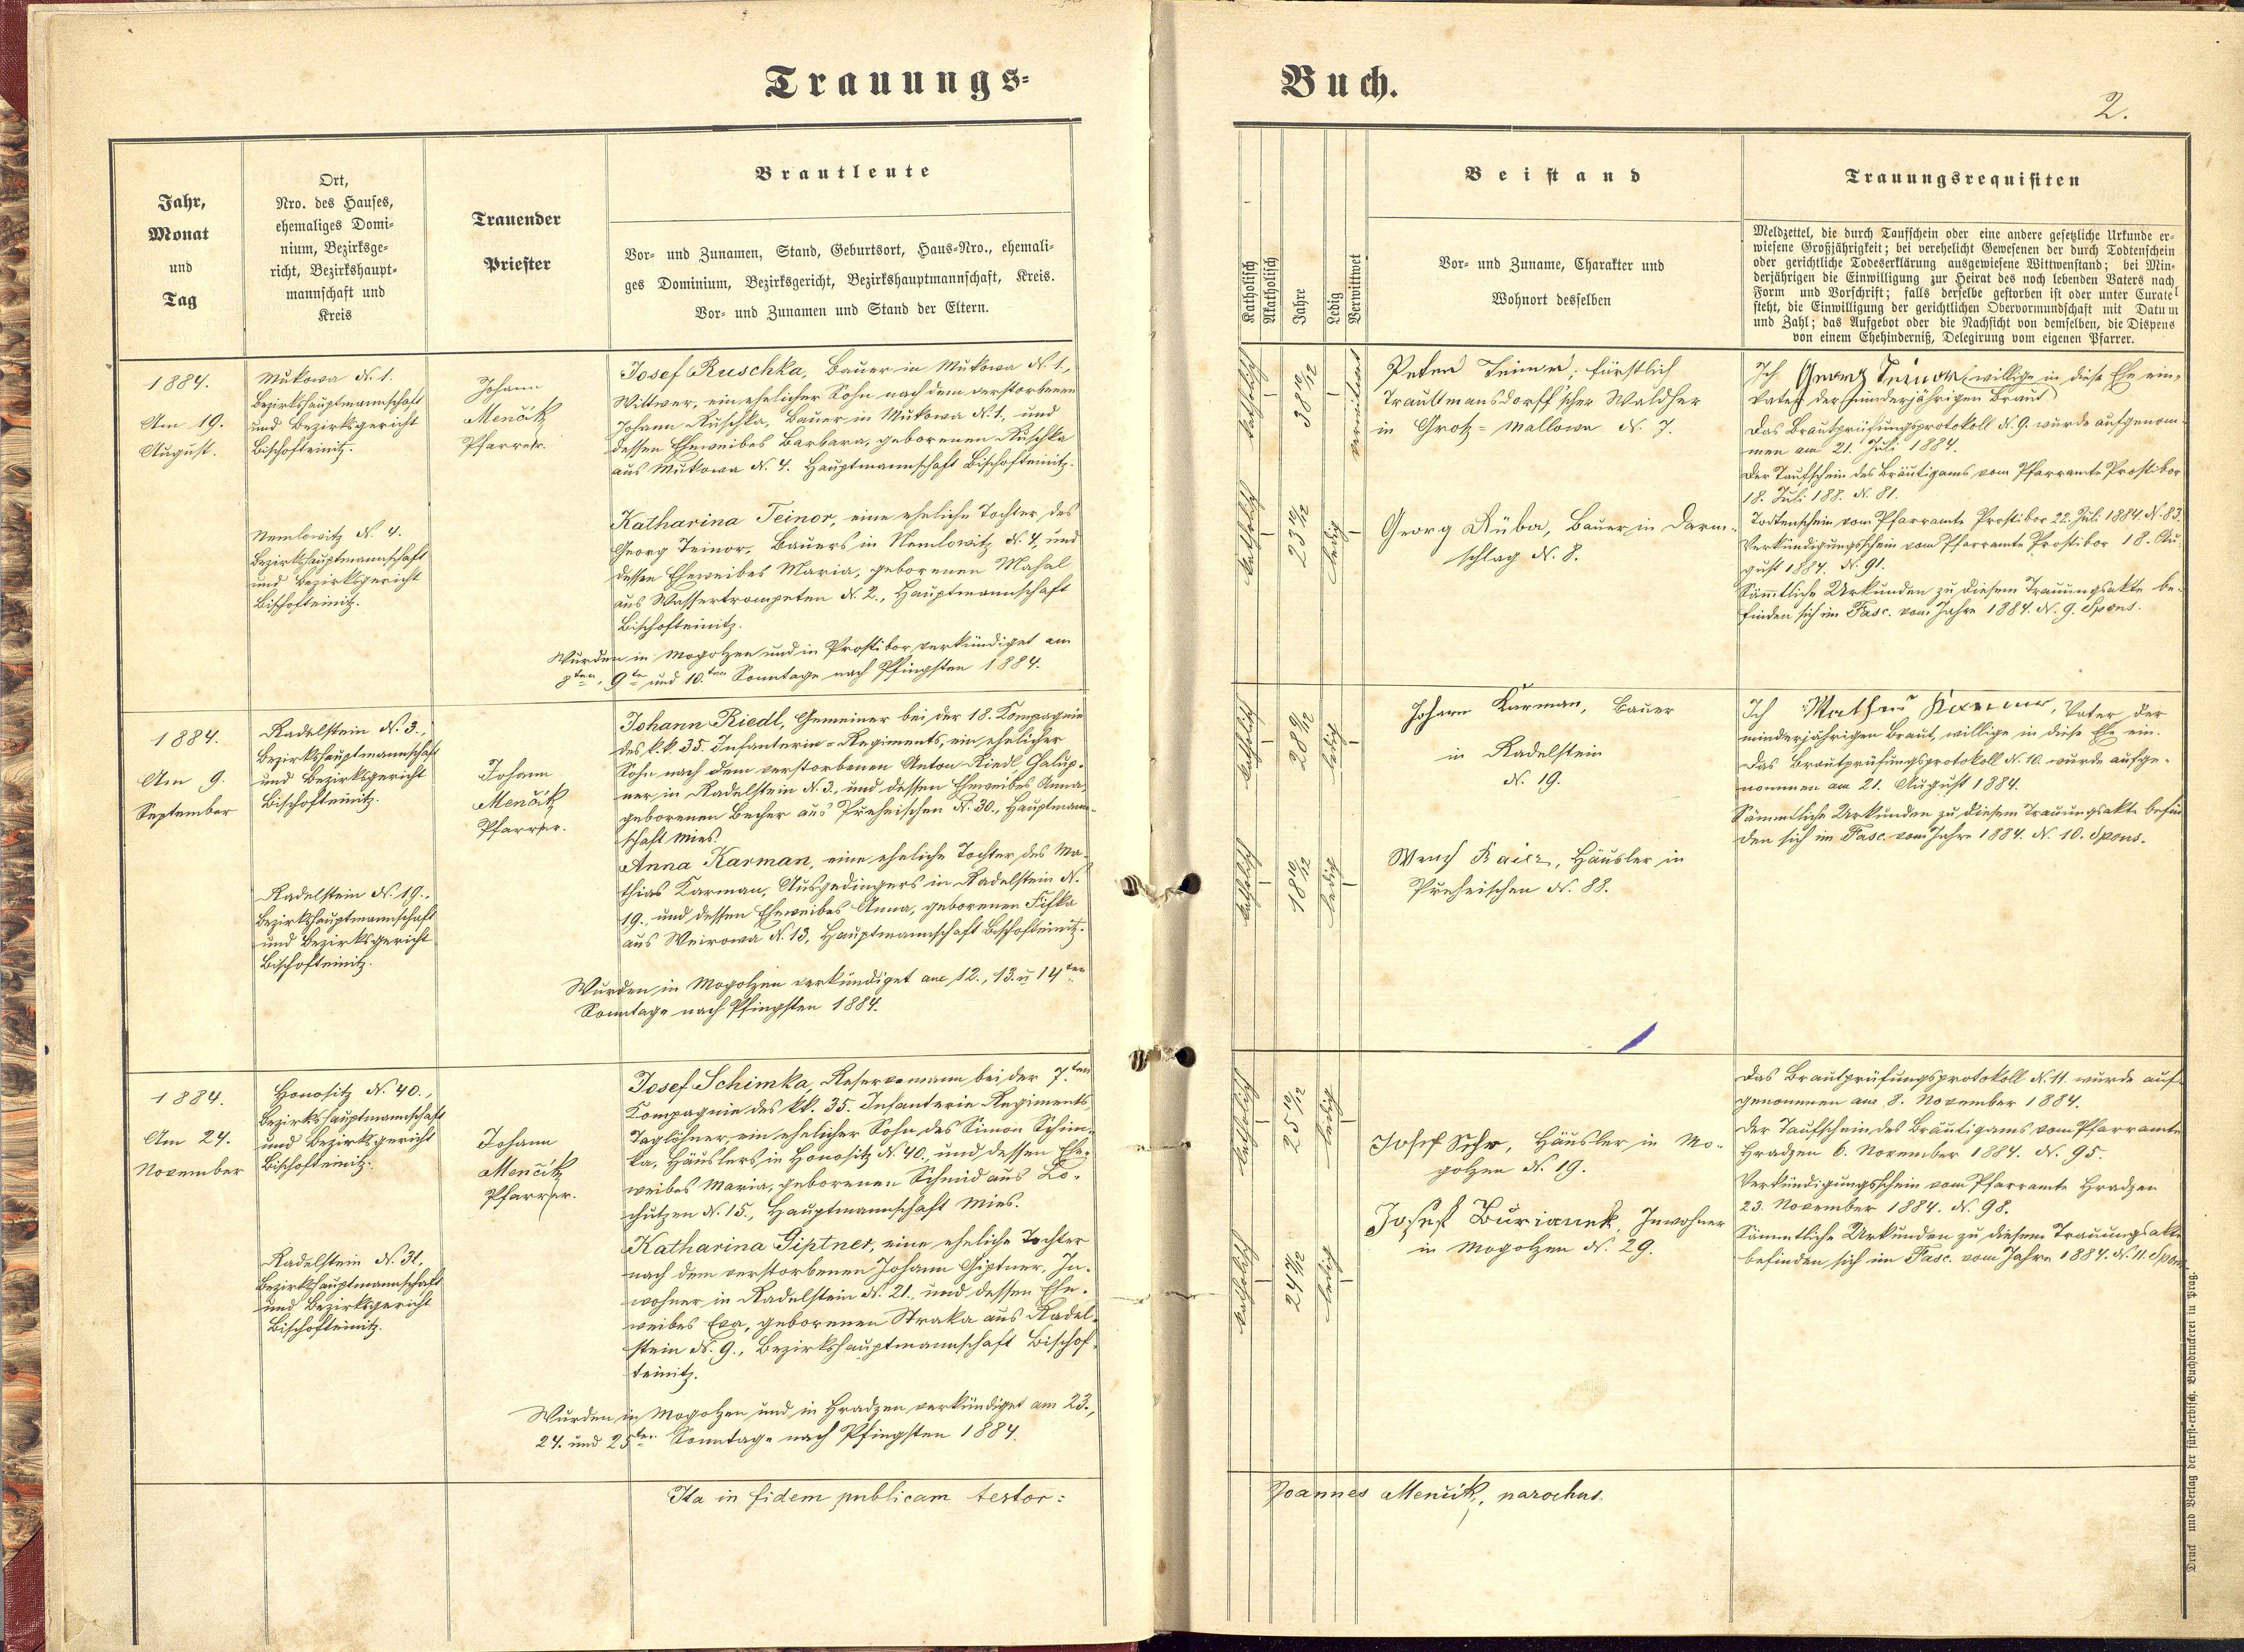 Trauungs-
Buch.
2.
Jahr,
Monat
und
Tag
Ort,
Nro. des Hauses,
ehemaliges Domi-
nium, Bezirksge-
richt, Bezirkshaupt-
mannschaft und
Kreis
Trauender
Priester
Brautleute
Vor- und Zunamen, Stand, Geburtsort, Haus-Nro., ehemali-
ges Dominium, Bezirksgericht, Bezirkshauptmannschaft, Kreis.
Vor- und Zunamen und Stand der Eltern.
Katholisch
Akatholisch
Jahre
Ledig
Verwittwet
Beistand
Vor- und Zuname, Charakter und
Wohnort desselben
Trauungsrequisiten
Meldzettel, die durch Taufschein oder eine andere gesetzliche Urkunde er-
wiesene Großjährigkeit; bei verehelicht Gewesenen der durch Todtenschein
oder gerichtliche Todeserklärung ausgewiesene Wittwenstand; bei Min-
derjährigen die Einwilligung zur Heirat des noch lebenden Vaters nach
Form und Vorschrift; falls derselbe gestorben ist oder unter Curatel
steht, die Einwilligung der gerichtlichen Obervormundschaft mit Datum
und Zahl; das Aufgebot oder die Nachsicht von demselben, die Dispens
von einem Ehehinderniß, Delegirung vom eigenen Pfarrer.
1884.
Am 19.
August.
Mukowa N. 1.
Bezirkshauptmannschaft
und Bezirksgericht
Bischofteinitz.
Nemlowitz N. 4.
Bezirkshauptmannschaft
und Bezirksgericht
Bischofteinitz.
Johann
Menčik
Pfarrer.
Josef Ruschka, Bauer in Mukowa N. 1.,
Wittwer, ein ehelicher Sohn nach dem verstorbenen
Johann Ruschka, Bauer in Mukowa N. 1., und
dessen Eheweibes Barbara, geborenen Ruschka
aus Mukowa N. 4. Hauptmannschaft Bischofteinitz.
Katharina Teinor, eine eheliche Tochter des
Georg Teinor, Bauers in Nemlowitz N. 4, und
dessen Eheweibes Maria, geborenen Mahal
aus Wassertrompeten N. 2., Hauptmannschaft
Bischofteinitz.
Wurden in Mogolzen und in Prostibor verkündiget am
8ten, 9te und 10.ten Sonntage nach Pfingsten 1884.
katholisch
38 10/12
verwittwet
katholisch
23 10/12
ledig
Peter Teinor; fürstlich
Traultmansdorff'scher Waldheger
in Groß-Mallowa N. 7.
Georg Rüba, Bauer in Darm-
schlag N. 8.
Ich Georg Teinor willige in diese Ehe ein,
Vater der minderjährigen Braut
Das Brautprüfungsprotokoll N. 9. wurde aufgenom-
men am 21. Juli 1884.
Der Taufschein des Bräutigams vom Pfarramte Prostibor
18. Juli 188. N. 81.
Todtenschein vom Pfarramte Prostibor 22. Juli 1884. N. 83.
Verkündigungsschein vom Pfarramte Prostibor 18. Au-
gust 1884. N. 91.
Sämtliche Urkunden zu diesem Trauungsakte be-
finden sich im Fasc. vom Jahre 1884. N. 9. Spons.
1884.
Am 9.
September
Radelstein N. 3.,
Bezirkshauptmannschaft
und Bezirksgericht
Bischofteinitz.
Radelstein N. 19.,
Bezirkshauptmannschaft
und Bezirksgericht
Bischofteinitz.
Johann
Menčik
Pfarrer.
Johann Riedl, Gemeiner bei der 18. Kompagnie
des k.k. 35. Infanterie-Regiments, ein ehelicher
Sohn nach dem verstorbenen Anton Riedl Chalup-
ner in Radelstein N. 3., und dessen Eheweibes Anna,
geborenen Becher aus Preheischen N. 30., Hauptmann-
schaft Mies.
Anna Karman, eine eheliche Tochter des Ma-
thias Karman, Ausgedingers in Radelstein N.
19., und dessen Eheweibes Anna, geborenen Fifka
aus Weirowa N. 13, Hauptmannschaft Bischofteinitz.
Wurden in Mogolzen verkündiget am 12., 13. u 14ten
Sonntage nach Pfingsten 1884.
katholisch
28 9/12
ledig
katholisch
18 10/12
ledig
Johann Karman, Bauer
in Radelstein
N. 19.
Wenzl Baier, Häusler in
Preheischen N. 88.
Ich Mathias Karman, Vater der
minderjährigen Braut, willige in diese Ehe ein.
Das Brautprüfungsprotokoll N. 10. wurde aufge-
nommen am 21. August 1884.
Sämmtliche Urkunden zu diesem Trauungsakte befin-
den sich im Fasc. vom Jahre 1884. N. 10. Spons.
1884.
Am 24.
November
Honositz N. 40.,
Bezirkshauptmannschaft
und Bezirksgericht
Bischofteinitz.
Radelstein N. 31.,
Bezirkshauptmannschaft
und Bezirksgericht
Bischofteinitz.
Johann
Menčik
Pfarrer.
Josef Schimka, Reservemann bei der 7.ten
Kompagnie des kk. 35. Infanterie Regiments,
Taglöhner, ein ehelicher Sohn des Simon Schim-
ka, Häuslers in Honositz N. 40., und dessen Ehe-
weibes Maria, geborenen Schmid aus Lo-
chutzen N. 15., Hauptmannschaft Mies.
Katharina Giptner, eine eheliche Tochter
nach dem verstorbenen Johann Giptner, In-
wohner in Radelstein N. 21., und dessen Ehe-
weibes Eva, geborenen Straka aus Radel-
stein N. 9., Bezirkshauptmannschaft Bischof-
teinitz.
Wurden in Mogolzen und in Hradzen verkündiget am 23.,
24. und 25ten Sonntage nach Pfingsten 1884.
katholisch
25 10/12
ledig
katholisch
ledig
Josef Sehr, Häusler in Mo-
golzen N. 19.
Josef Burianek, Inwohner
in Mogolzen N. 29.
Das Brautprüfungsprotokoll N. 11. wurde auf-
genommen am 8. November 1884.
Der Taufschein des Bräutigams vom Pfarramte
Hradzen 6. November 1884. N. 95.
Verkündigungsschein vom Pfarramte Hradzen
23. November 1884. N. 98.
Sämmtliche Urkunden zu diesem Trauungsakte
befinden sich im Fasc. vom Jahre 1884. N. 11. Spons
Ita in fidem publicam testor:
Joannes Menčik, parochus.
Druck und Verlag der fürst-erzbisch. Buchdruckerei in Prag.